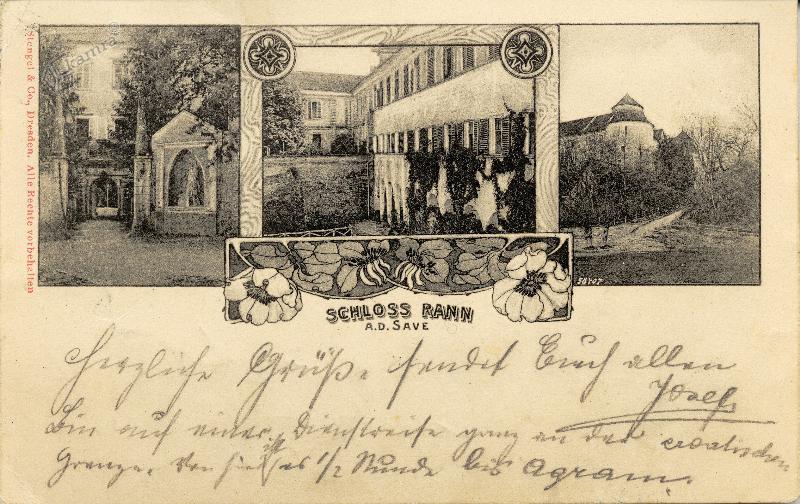 kamra
Stengel & Co., Dresden. Alle Rechte vorbehalten
58707
SCHLOSS RANN
A.D. SAVE
Herzliche Grüße sendet Euch allen
Josef
Bin auf einer Dienstreise ganz an der croatischen
Grenze. Von hier ist es 1/2 Stunde bis Agram.